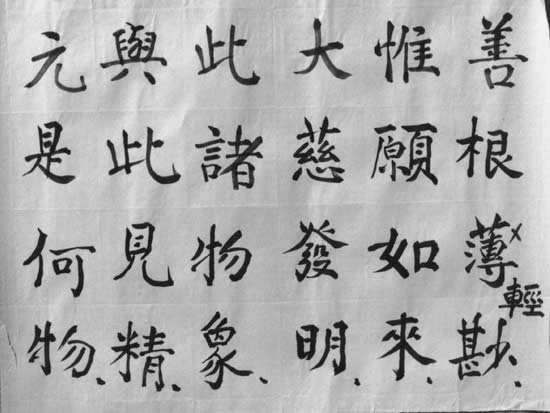 善根薄尠、
輕
惟願如來、
大慈發明、
此諸物象、
與此見精、
元是何物、